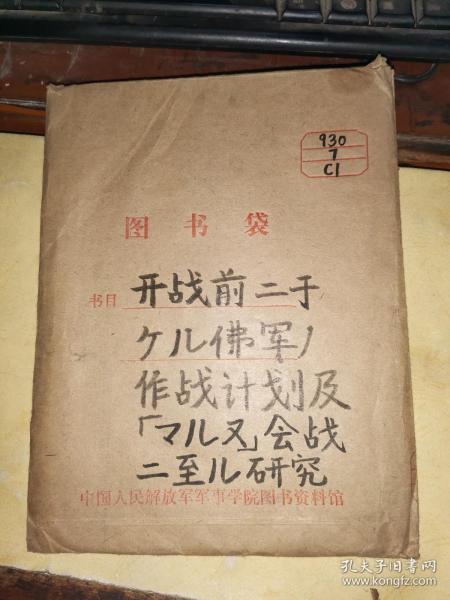 930
7
C1
图书袋
书目 开战前二于
ケル佛军ノ
作战计划及
「マルヌ」会战
二至ル研究
中国人民解放军军事学院图书资料馆
孔夫子旧书网
www.kongfz.com